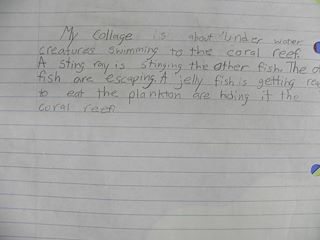 My Collage is about Under water
creatures swimming to the coral reef.
A sting ray is stinging the other fish. The
fish are escaping. A jelly fish is getting
to eat the plankton are hiding it the
coral reef